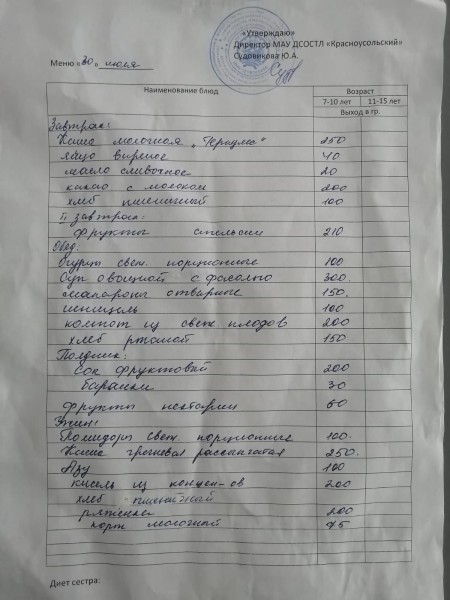 «Утверждаю»
Директор МАУ ДСОСТЛ «Красноусольский»
Судовикова Ю.А.
Меню «30» июля
Наименование блюд
Возраст
7-10 лет 11-15 лет
Выход в гр.
Завтрак:
Каша молочная „Геркулес" 250
яйцо вареное 40
масло сливочное 20
какао с молоком 200
хлеб пшеничный 100
II завтрак:
фрукты апельсин 210
Обед:
Огурцы свеж. порционные 100
Суп овощной с фасолью 300.
макароны отварные 150.
шницель 100
компот из свеж плодов 200
хлеб ржаной 150
Полдник:
Сок фруктовый 200
баранки 30
фрукты нектарин 60
Ужин:
Помидоры свеж порционные 100.
Каша гречневая рассыпчатая 250.
Азу 100
кисель из концен-ов 200
хлеб пшеничный
ряженка 200
корж молочный 75
Диет сестра: